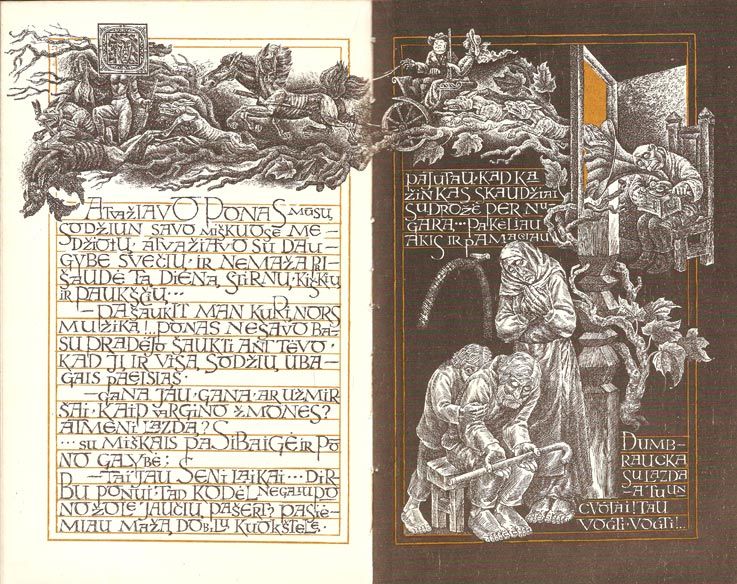 ATVAŽIAVO PONAS MŪSŲ
SODŽIUN SAVO MIŠKUOSE ME-
DŽIOTŲ. ATVAŽIAVO SU DAU-
GYBE SVEČIŲ. IR NEMAŽA PRI-
ŠAUDĖ TĄ DIENĄ STIRNŲ, KIŠKIŲ
IR PAUKŠČIŲ...
— PAŠAUKIT MAN KURĮ NORS
MUŽIKĄ!.. PONAS NE SAVO BAL-
SU PRADĖJO ŠAUKTI ANT TĖVO,
KAD JĮ IR VISĄ SODŽIŲ UBA-
GAIS PALEISIĄS.
— GANA JAU, GANA. AR UŽMIR-
ŠAI, KAIP VARGINO ŽMONES?
ATMENI LAZDĄ?
...SU MIŠKAIS PASIBAIGĖ IR PO-
NO GALYBĖ:
— TAI JAU SENI LAIKAI... DIR-
BU PONUI, TAD KODĖL NEGALIU PO-
NO ŽOLE JAUČIŲ PAŠERTI.
MIAU MAŽĄ DOBILŲ KUOKŠTELĘ.
PAJUTAU, KAD KA
ŽINKAS SKAUDŽIAI
SUDROŽĖ PER NU-
GARĄ... PAKĖLIAU
AKIS IR PAMAČIAU
DUMB-
RAUCKĄ
SU LAZDA
— A TU UN
CVOTAI! TAU
VOGTI, VOGTI!..